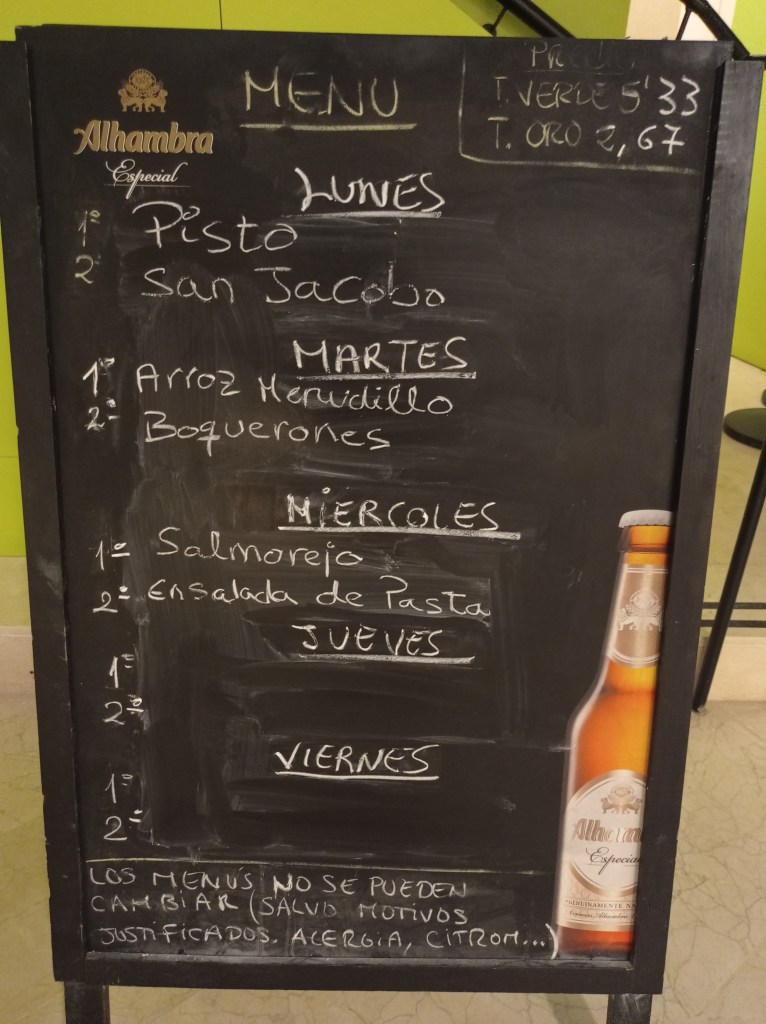 MENU
Alhambra
Especial
T. VERDE 5'33
T. ORO 2,67
LUNES
1º Pisto
2 San Jacobo
MARTES
1º Arroz Menudillo
2º Boquerones
MIERCOLES
1º Salmorejo
2º Ensalada de Pasta
JUEVES
1º
2º
VIERNES
1º
2º
LOS MENUS NO SE PUEDEN
CAMBIAR (SALVO MOTIVOS
JUSTIFICADOS. ALERGIA, CITROM...)
Especial